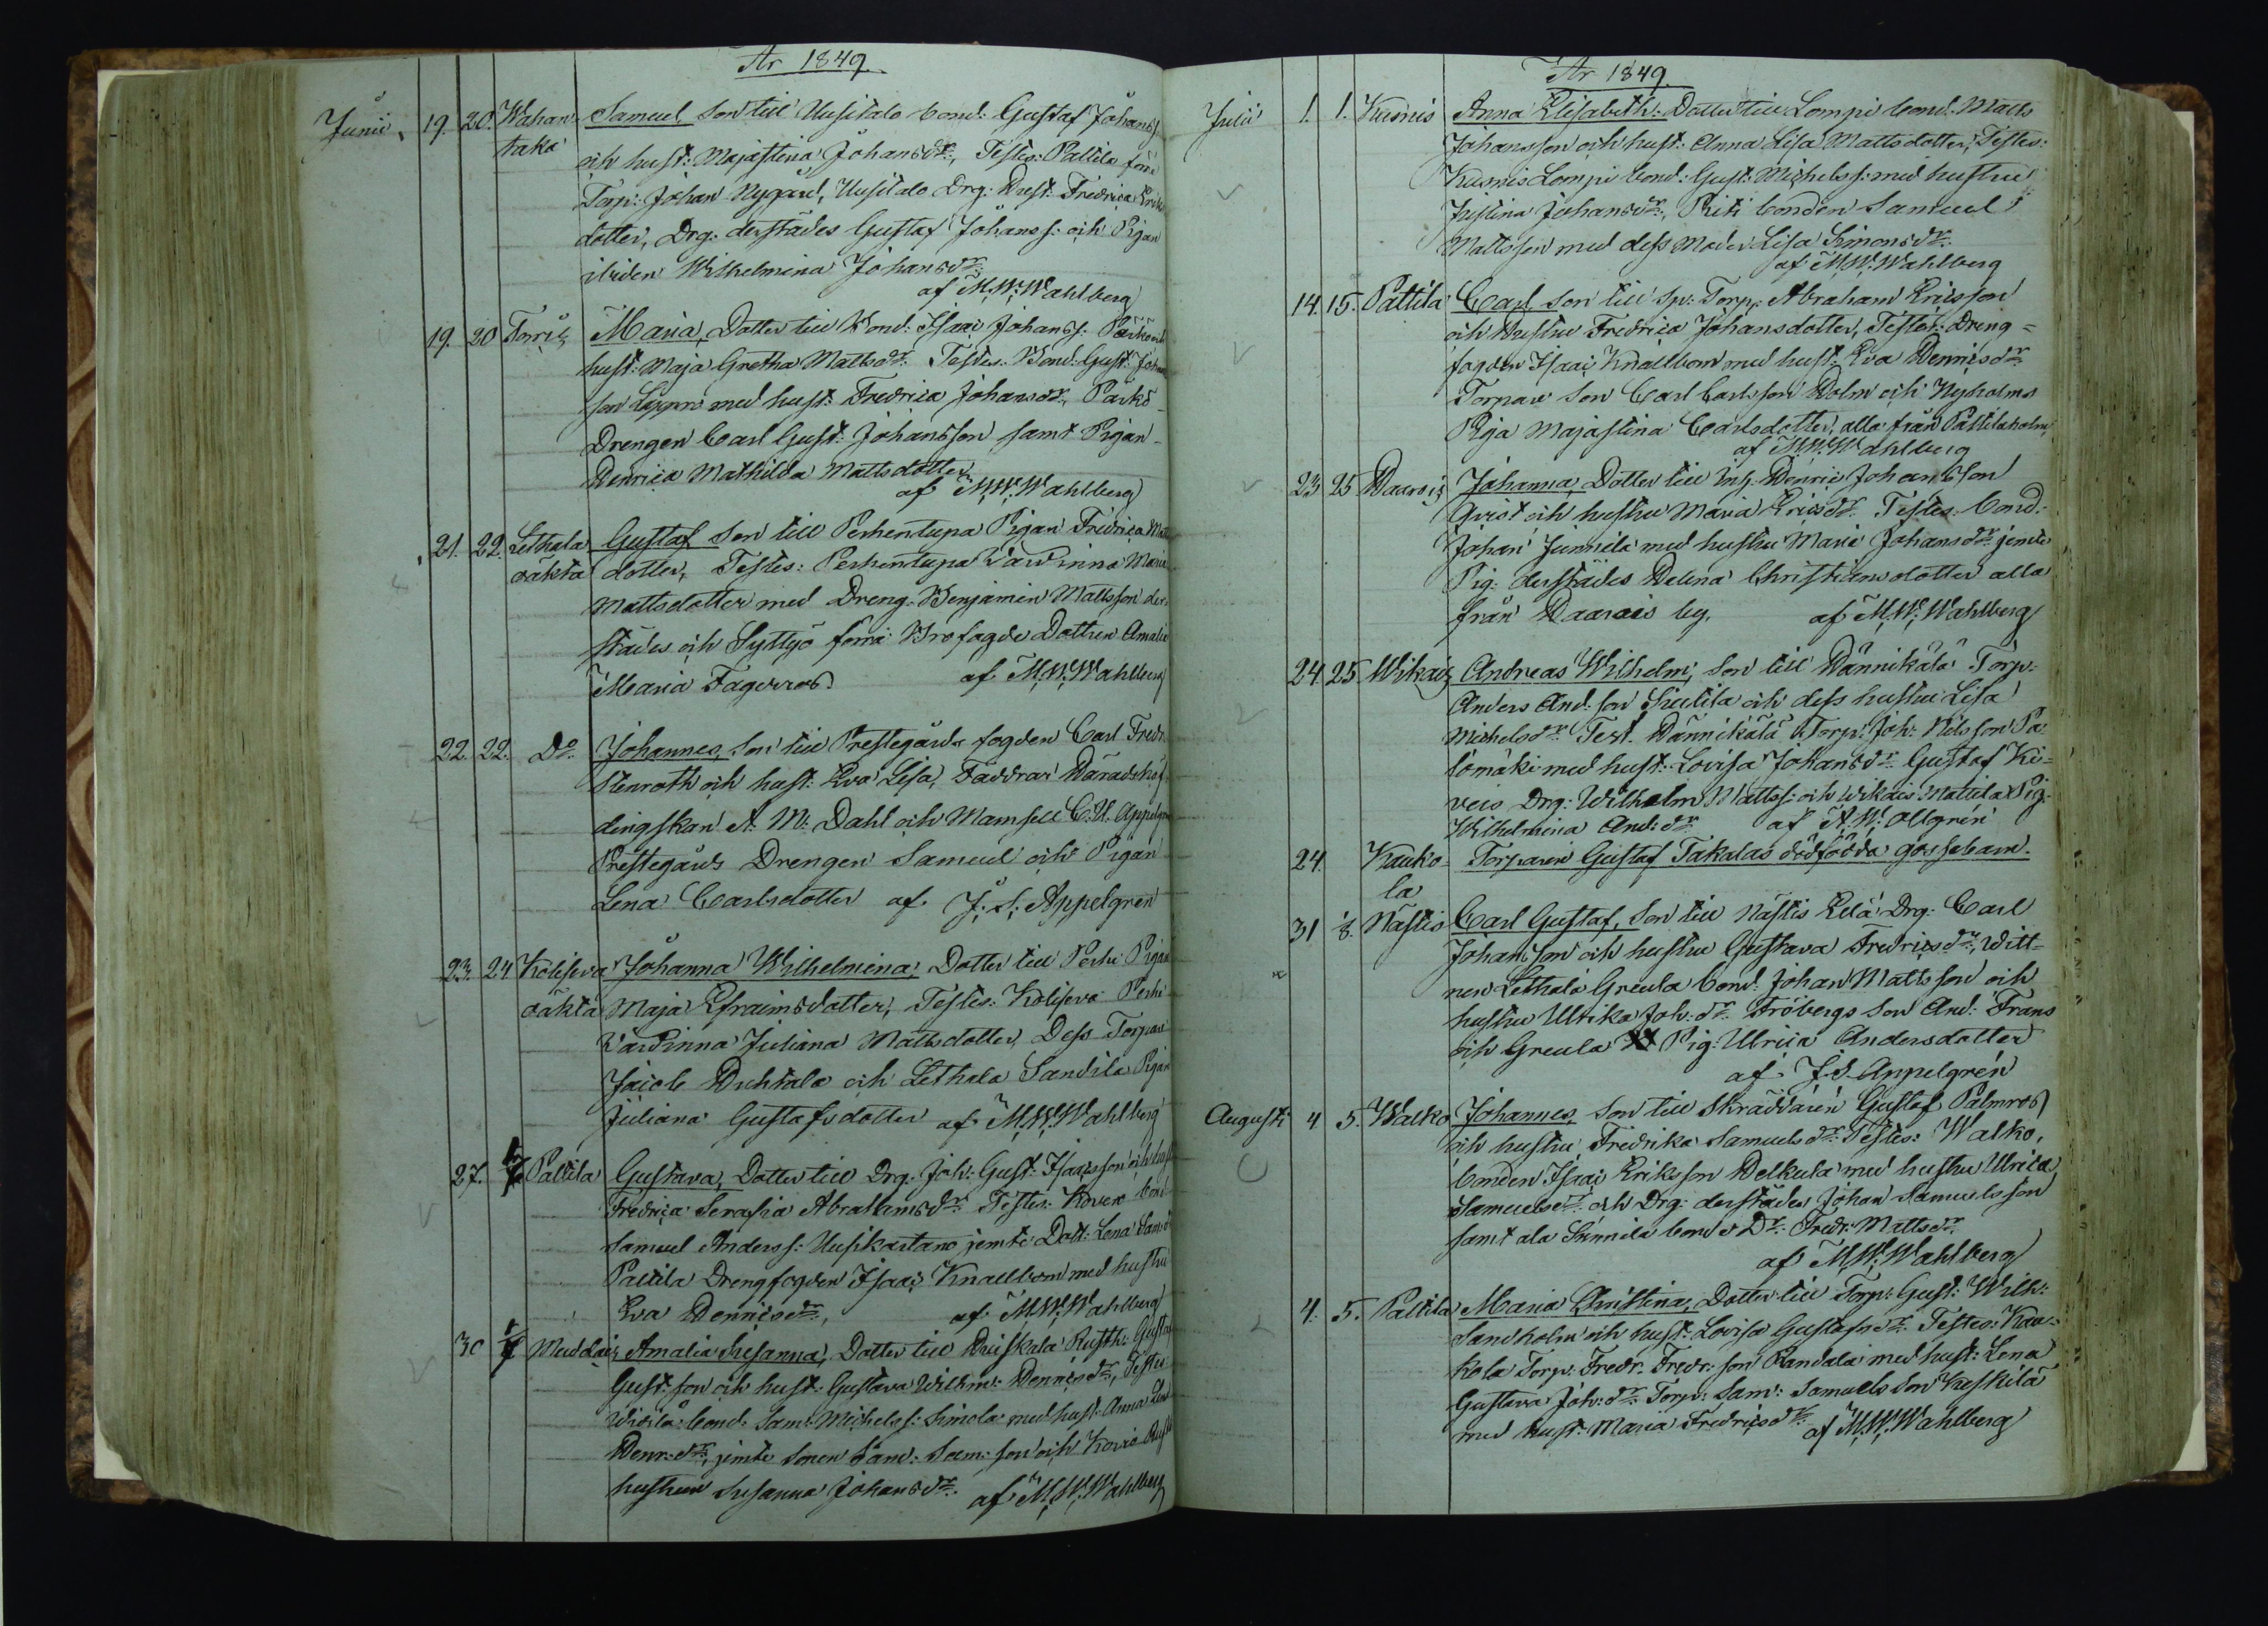 År 1849
Junii 19. 20. Wahan- Samuel, Son till Uusitalo bond: Gustaf Johanss.
taka och hust: Majastina Johansdr, Testes: Pattila förre
Torp: Johan Nygård, Uusitalo Drg: Fredrica Eriks
dotter, Drg: derstädes Gustaf Johanss: och Pigan
ibiden Wilhelmina Johansdr
af M.W. Wahlberg
19. 20 Torris Maria, Dotter till Bond: Isaac Johanss: Pärkö och
hust: Maja Gretha Mattsdr Testes: Bond: Gust: Johan
son Leppri med hust: Fredrica Johansdr, Pärkö
Drengen Carl Gust: Johansson samt Pigan
Henrica Mathilda Mattsdotter
af M.W. Wahlberg
21. 22. Lethala Gustaf Son till Perhentupa Pigan Fredrica Matts
oäkta dotter, Testes: Perhentupa Värdinna Maria
Mattsdotter med Dreng Benjamin Mattsson der-
städes och Syttyö förra Brofogde Dottren Amalia
Maria Fagerroos af M.W. Wahlberg
22. 22. Do Johannes, Son till Prestegårds fogden Carl Fredr.
Stenroth och hust: Eva Lisa, Faddrar Häradshöf-
dingskan A. M. Dahl och Mamsell C. U. Appelgren
Prestegårds Drengen Samuel och Pigan
Lena Carlsdotter af J. S. Appelgren
23. 24 Koliseva Johanna Wilhelmina, Dotter till Perhe Pigan
oäkta Maja Efraimsdotter, Testes: Koliseva Perhe
Värdinna Juliana Mattsdotter, Dess Torpare
Jacob Huhtala och Lethala Sandila Pigan
Juliana Gustafsdotter af M.W. Wahlberg
27. 1/7 Pattila Gustava, Dotter till Drg. Joh: Gust: Isaacsson och hust
Fredrica Serafia Abrahamsdr Testes: Kovero bond
Samuel Anderss: Uusikartano jemte Dott: Lena
Pattila Drengfogden Isaac Knallbom med hustru
Eva Henricsdr, af M.W. Wahlberg
30 1/7 Muddais Amalia Susanna, Dotter till Huiskala Rusth: Gustaf
Gust: son och hust: Gustava Wilhm: Henricsdr, Testes
bond: Sam: Michelss: Simola med hust: Anna
Henr:dr, jemte Sonen Sam: Sam: son och
hustrun Susanna Johansdr. af M.W. Wahlberg
År 1849
Julii 1. 1. Kusnis Anna Elisabeth: Dotter till Lompi bond: Matts
Johansson och hust: Anna Lisa Mattsdotter, Testes:
Kusnis Lompi bond: Gust: Michelss: med hustru
Justina Johansdr, Riti bonden Samuel
Mattsson med dess Moder Lisa Simonsdr
af M.W. Wahlberg
14. 15. Pattila Carl Son till Sp: Torp: Abraham Ericsson
och Hustru Fredrica Johansdotter, Testes: Dreng-
fogden Isaac Knallbom med hust: Eva Henricsdr
Torpare Son Carl Carlsson Holm och Nyholms
Piga Majastina Carlsdotter, alla från Pattilaholm,
af M.W. Wahlberg
23 25 Haarois Johanna, Dotter till Inh: Henric Johansson
Qvist och hustru Maria Ericsdr Testes: bond:
Johan Junnila med hustru Maria Johansdr jemte
Pig: derstädes Helena Christiansdotter alla
från Haarois by. af M.W. Wahlberg
24. 25 Wikais Andreas Wilhelm, Son till Hännikälä Torp:
Anders And: son och dess hustru Lisa
Michelsdr Test. Hännikälä Torp: Joh: Nilsson Pa-
lomäki med hust: Lovisa Johansdr Gustaf Ki-
veis Drg: Wilhelm Mattss: och Wikais Mattila Pig:
Wilhelmina And:dr af A.W. Allgrén
24. Kauko- Torparen Gustaf Takalas dödfödda gossebarn.
la
31 5/8. Nästis Carl Gustaf, Son till Nästis Kelä Drg: Carl
Johansson och hustru Gustava Fredricsdr, Witt-
nen Lethala Greula bond: Johan Mattsson och
hustru Ulrika Joh:dr Fröbergs Son And: Frans
och Greula Pig: Ulrica Andersdotter
af J.S. Appelgrén
Augusti 4 5. Walko Johannes, Son till Skräddaren Gustaf Palmros
och hustru Fredrika Samuelsdr Testes: Walko,
bonden Isaac Eriksson Helkula med hustru Ulrica
Samuelsdr och Drg: derstädes Johan Samuelsson
samt ala Sunnila bonds Dr: Fredr: Mattsdr
af M.W. Wahlberg
4. 5. Pattila Maria Christina, Dotter till Torp: Gust: Wilh:
Sandholm och hust: Lovisa Gustafsdr Testes: Kau-
kola Torp: Fredr. Fredr: son Randala med hust: Lena
Gustava Joh:dr Torp: Sam: Samuelsson Keskilä
med hust: Maria Fredricsdr af M.W. Wahlberg